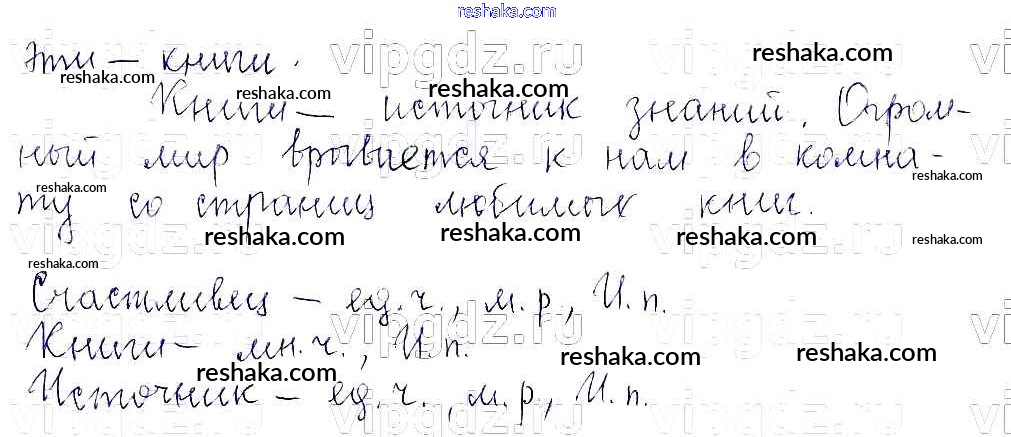 reshaka.com
эти — книги.
Книги — источник знаний. Огром-
ный мир врывается к нам в комна-
ту со страниц любимых книг.
Счастливец — ед.ч., м.р., И.п.
Книги — мн.ч., И.п.
Источник — ед.ч., м.р., И.п.